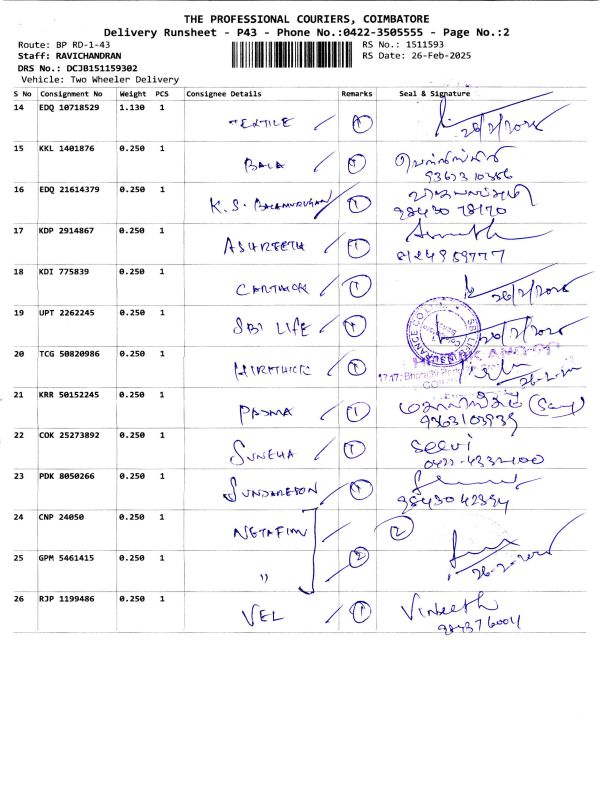 THE PROFESSIONAL COURIERS, COIMBATORE
Delivery Runsheet - P43 - Phone No.:0422-3505555 - Page No.:2
Route: BP RD-1-43 RS No.: 1511593
Staff: RAVICHANDRAN RS Date: 26-Feb-2025
DRS No.: DCJB151159302
Vehicle: Two Wheeler Delivery
S No Consignment No Weight PCS Consignee Details Remarks Seal & Signature
14 EDQ 10718529 1.130 1
TEXTILE 1 26/2/2025
15 KKL 1401876 0.250 1
BALA 1
9363310386
16 EDQ 21614379 0.250 1
K.S. BALAMURUGAN 1
98430 78170
17 KDP 2914867 0.250 1
ASHREETH 1
8124959777
18 KDI 775839 0.250 1
CARTHICK 1 26/2/2025
19 UPT 2262245 0.250 1
SBI LIFE 1 26/2/2025
20 TCG 50820986 0.250 1
HIRTHICK 1
26-2-25
21 KRR 50152245 0.250 1
PADMA 1
9363103939
22 COK 25273892 0.250 1
SUNEHA 1 Selvi
0422-4332400
23 PDK 8050266 0.250 1
SUNDARESON 1
9843042894
24 CNP 24050 0.250 1
NETAFIM 2
25 GPM 5461415 0.250 1
" 2 26-2-2025
26 RJP 1199486 0.250 1
VEL 1 Vineeth
984376004